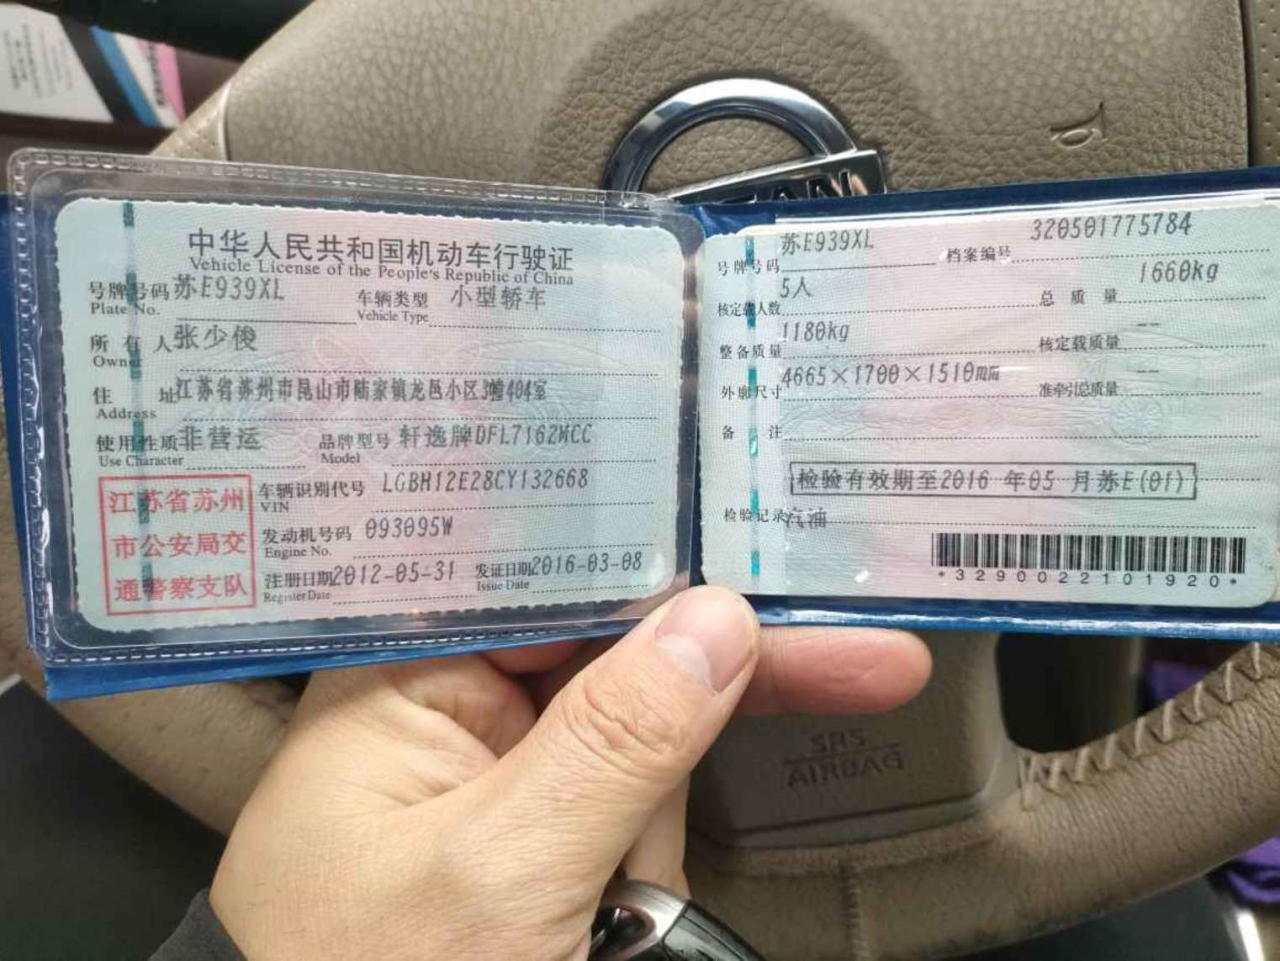 中华人民共和国机动车行驶证
Vehicle License of the People's Republic of China
号牌号码 苏E939XL 车辆类型 小型轿车
Plate No. Vehicle Type
所有人 张少俊
Owner
住址 江苏省苏州市昆山市陆家镇龙邑小区3幢404室
Address
使用性质 非营运 品牌型号 轩逸牌DFL7162MCC
Use Character Model
江苏省苏州
市公安局交
通警察支队
车辆识别代号 LGBH12E28CY132668
VIN
发动机号码 093095W
Engine No.
注册日期 2012-05-31 发证日期 2016-03-08
Register Date Issue Date
号牌号码 苏E939XL 档案编号 320501775784
核定载人数 5人 总质量 1660kg
整备质量 1180kg 核定载质量 --
外廓尺寸 4665×1700×1510mm 准牵引总质量 --
备注
检验有效期至2016 年05 月苏E(01)
检验记录 汽油
*3290022101920*
SRS
AIRBAG